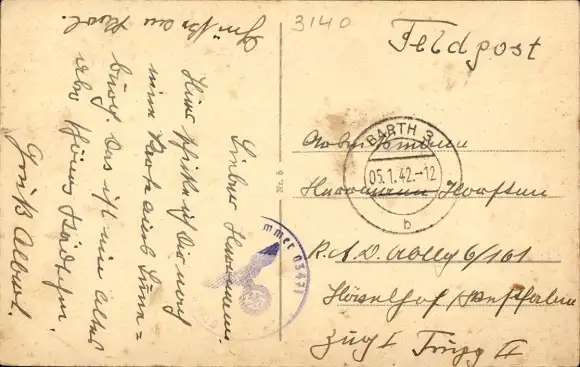 3140
Feldpost
BARTH 3
05.1.42.-12
b
Arbeitsmann
Hermann
R.A.D. Abtlg 6/161
Westfalen
Zug I Trupp II
Nr. 5
Lieber Hermann.
Hier schicke ich Dir noch
eine Karte aus Lüne=
burg. Das ist ein altes
aber schönes Städtchen
Gruß Albert.
Grüße an Karl.
mmer 03471